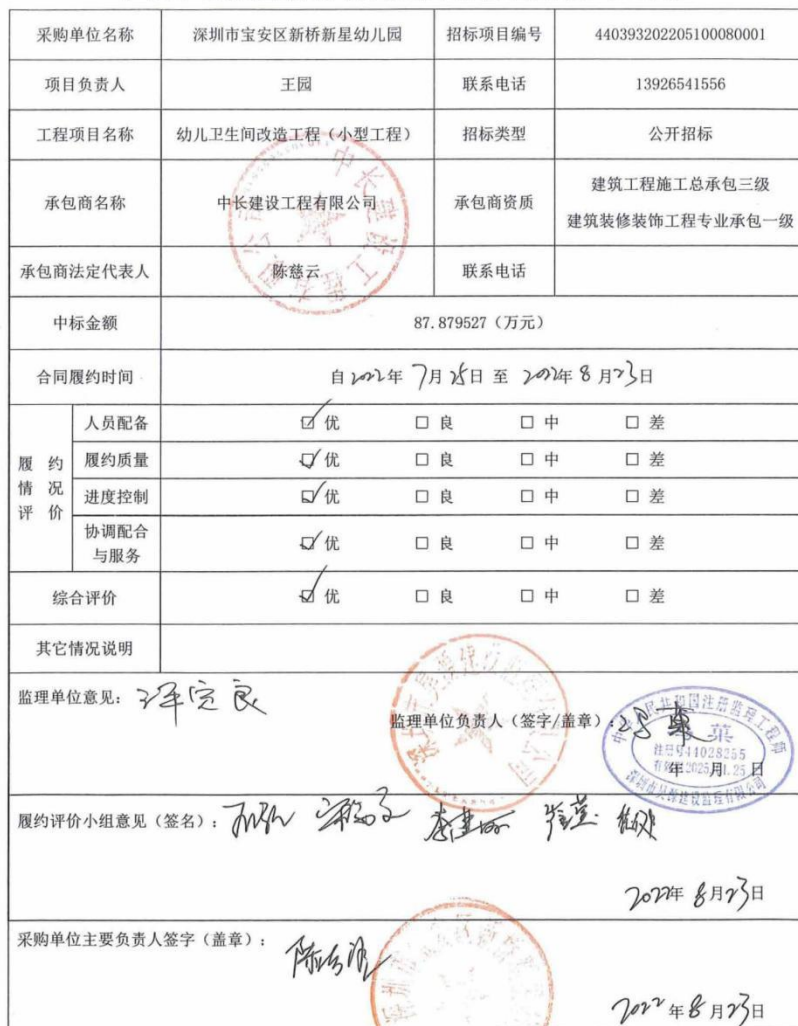 采购单位名称 深圳市宝安区新桥新星幼儿园 招标项目编号 440393202205100080001
项目负责人 王园 联系电话 13926541556
工程项目名称 幼儿卫生间改造工程（小型工程） 招标类型 公开招标
承包商名称 中长建设工程有限公司 承包商资质 建筑工程施工总承包三级
建筑装修装饰工程专业承包一级
承包商法定代表人 陈慈云 联系电话
中标金额 87.879527（万元）
合同履约时间 自2022年 7月25日 至 2022年 8月23日
履约情况评价
人员配备 ☑优 □良 □中 □差
履约质量 ☑优 □良 □中 □差
进度控制 ☑优 □良 □中 □差
协调配合
与服务 ☑优 □良 □中 □差
综合评价 ☑优 □良 □中 □差
其它情况说明
监理单位意见：评定良
监理单位负责人（签字/盖章）：
中华人民共和国注册监理工程师
注册号44028255
年 月 日
履约评价小组意见（签名）：
2022年8月23日
采购单位主要负责人签字（盖章）：
2022年8月23日
中长建设工程有限公司